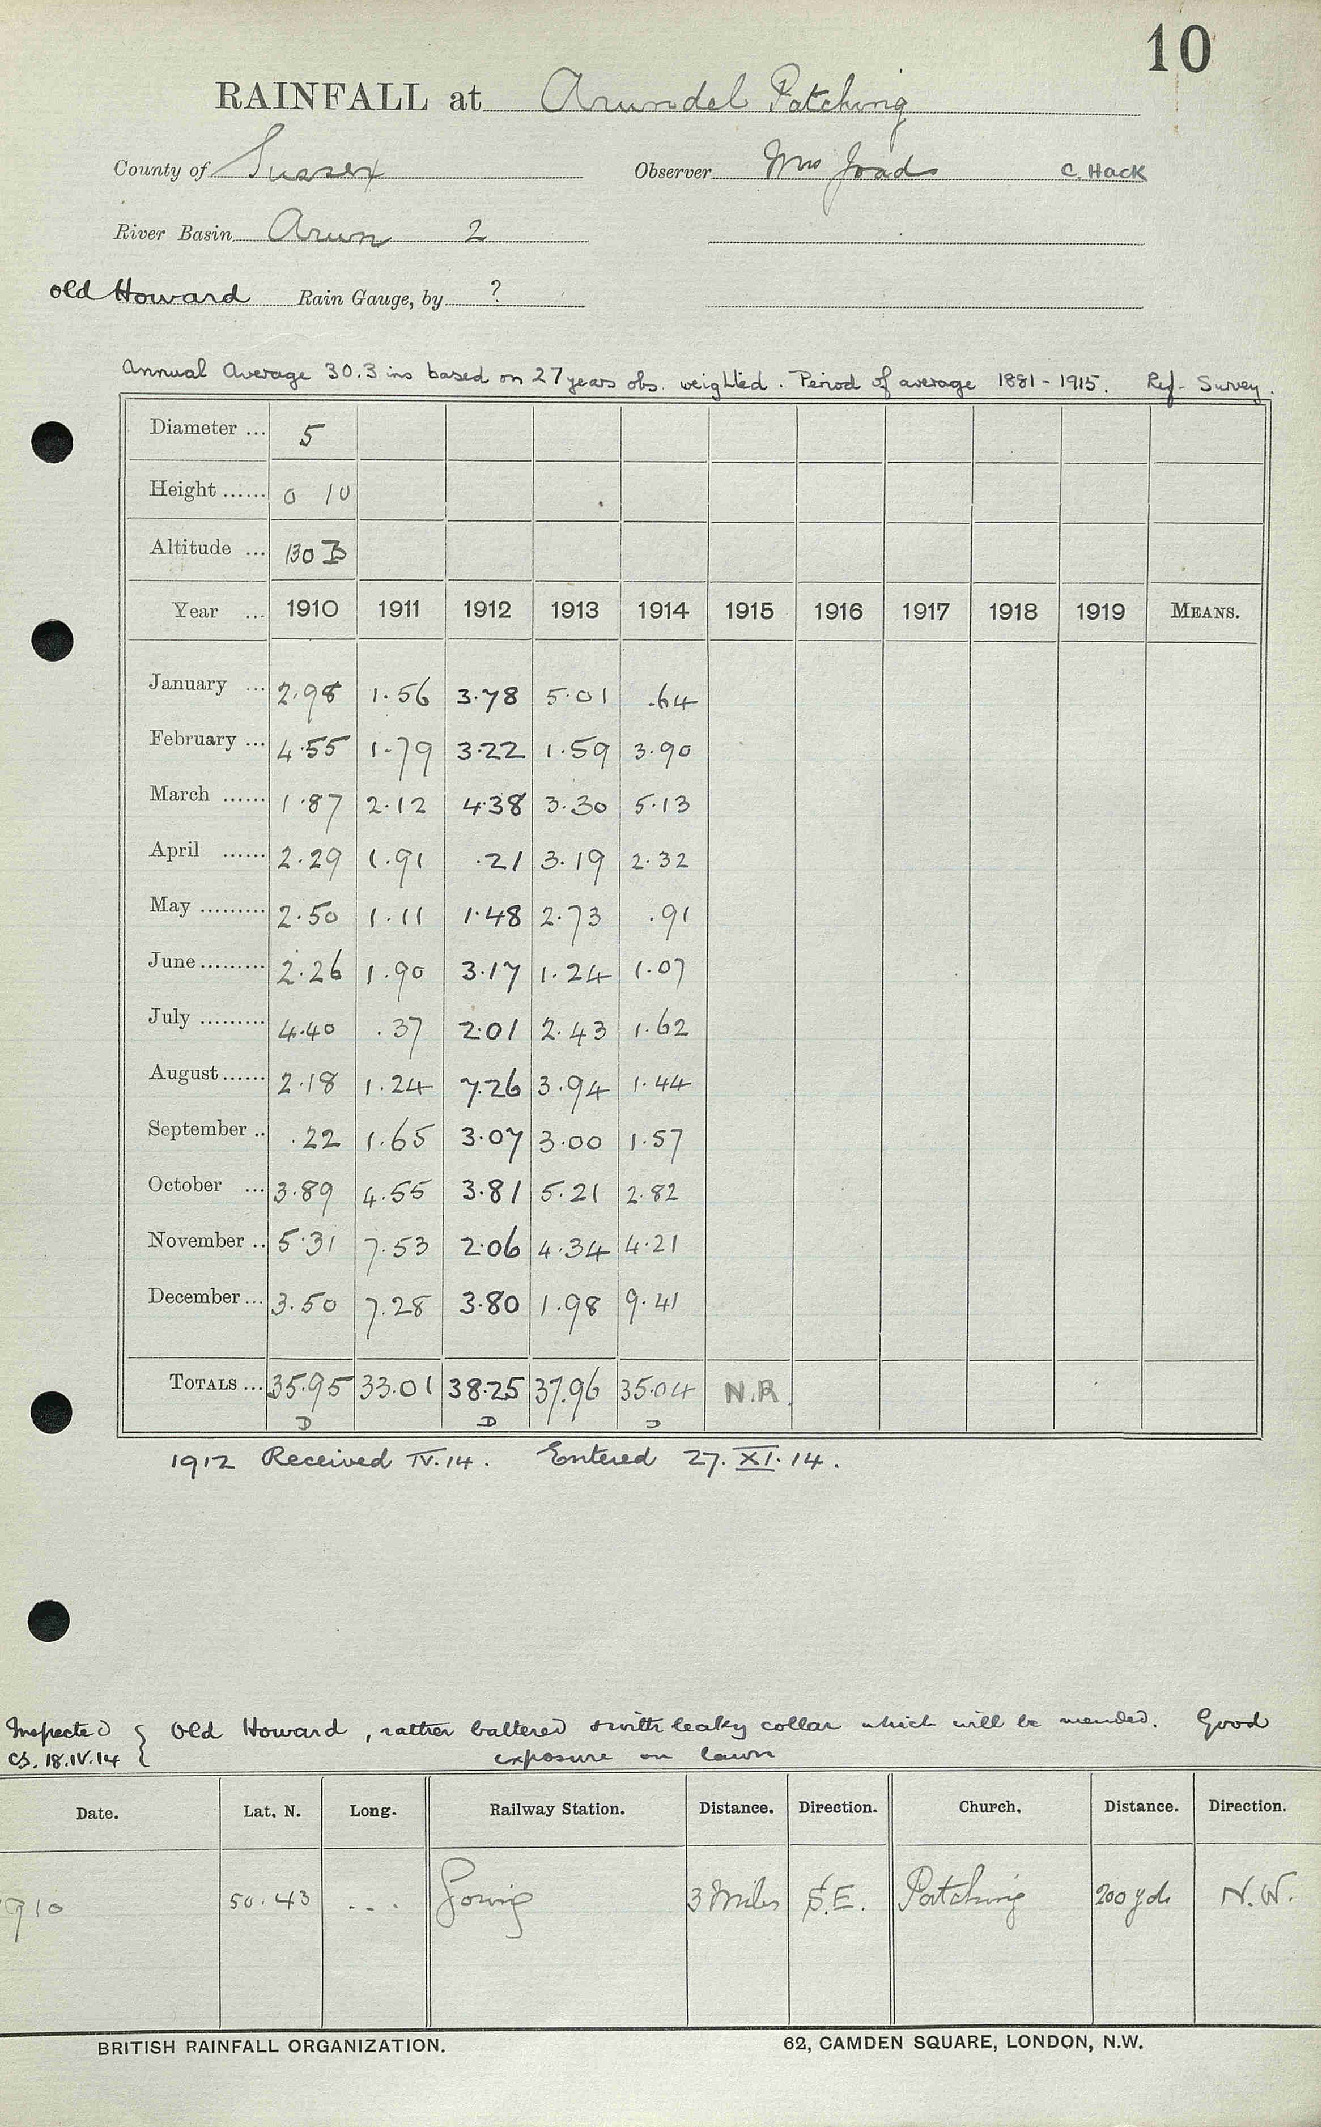 10
RAINFALL at Arundel Patching
County of Sussex Observer Mrs Joad C. Hack
River Basin Arun 2
old Howard Rain Gauge, by ?
Annual Average 30.3 ins based on 27 years obs. weighted. Period of average 1881-1915. Ref. Survey.
Diameter ... 5
Height ...... 0 10
Altitude ... 130 B
Year ... 1910 1911 1912 1913 1914 1915 1916 1917 1918 1919 MEANS.
January ... 2.98 1.56 3.78 5.01 .64
February ... 4.55 1.79 3.22 1.59 3.90
March ...... 1.87 2.12 4.38 3.30 5.13
April ...... 2.29 1.91 .21 3.19 2.32
May ......... 2.50 1.11 1.48 2.73 .91
June ......... 2.26 1.90 3.17 1.24 1.07
July ......... 4.40 .37 2.01 2.43 1.62
August ...... 2.18 1.24 7.26 3.94 1.44
September .. .22 1.65 3.07 3.00 1.57
October ... 3.89 4.55 3.81 5.21 2.82
November .. 5.31 7.53 2.06 4.34 4.21
December ... 3.50 7.28 3.80 1.98 9.41
TOTALS ... 35.95 33.01 38.25 37.96 35.04 N.R.
D D D
1912 Received IV.14. Entered 27.XI.14.
Inspected { Old Howard, rather battered & with leaky collar which will be mended. Good
CS. 18.IV.14 { exposure on lawn
Date. Lat. N. Long. Railway Station. Distance. Direction. Church. Distance. Direction.
910 50.43 ... Goring 3 Miles S.E. Patching 200 yds N.W.
BRITISH RAINFALL ORGANIZATION. 62, CAMDEN SQUARE, LONDON, N.W.